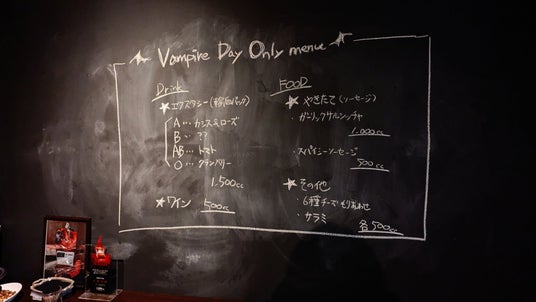 Vampire Day Only menu
Drink
★エクスタシー(輸血パック)
A … カシス&ローズ
B … ??
AB … トマト
O … クランベリー
1,500cc
★ワイン 500cc
FOOD
★やきたて(ソーセージ)
・ガーリックサルシッチャ
1,000cc
・スパイシーソーセージ
500cc
★その他
・6種チーズもりあわせ
・サラミ
各500cc